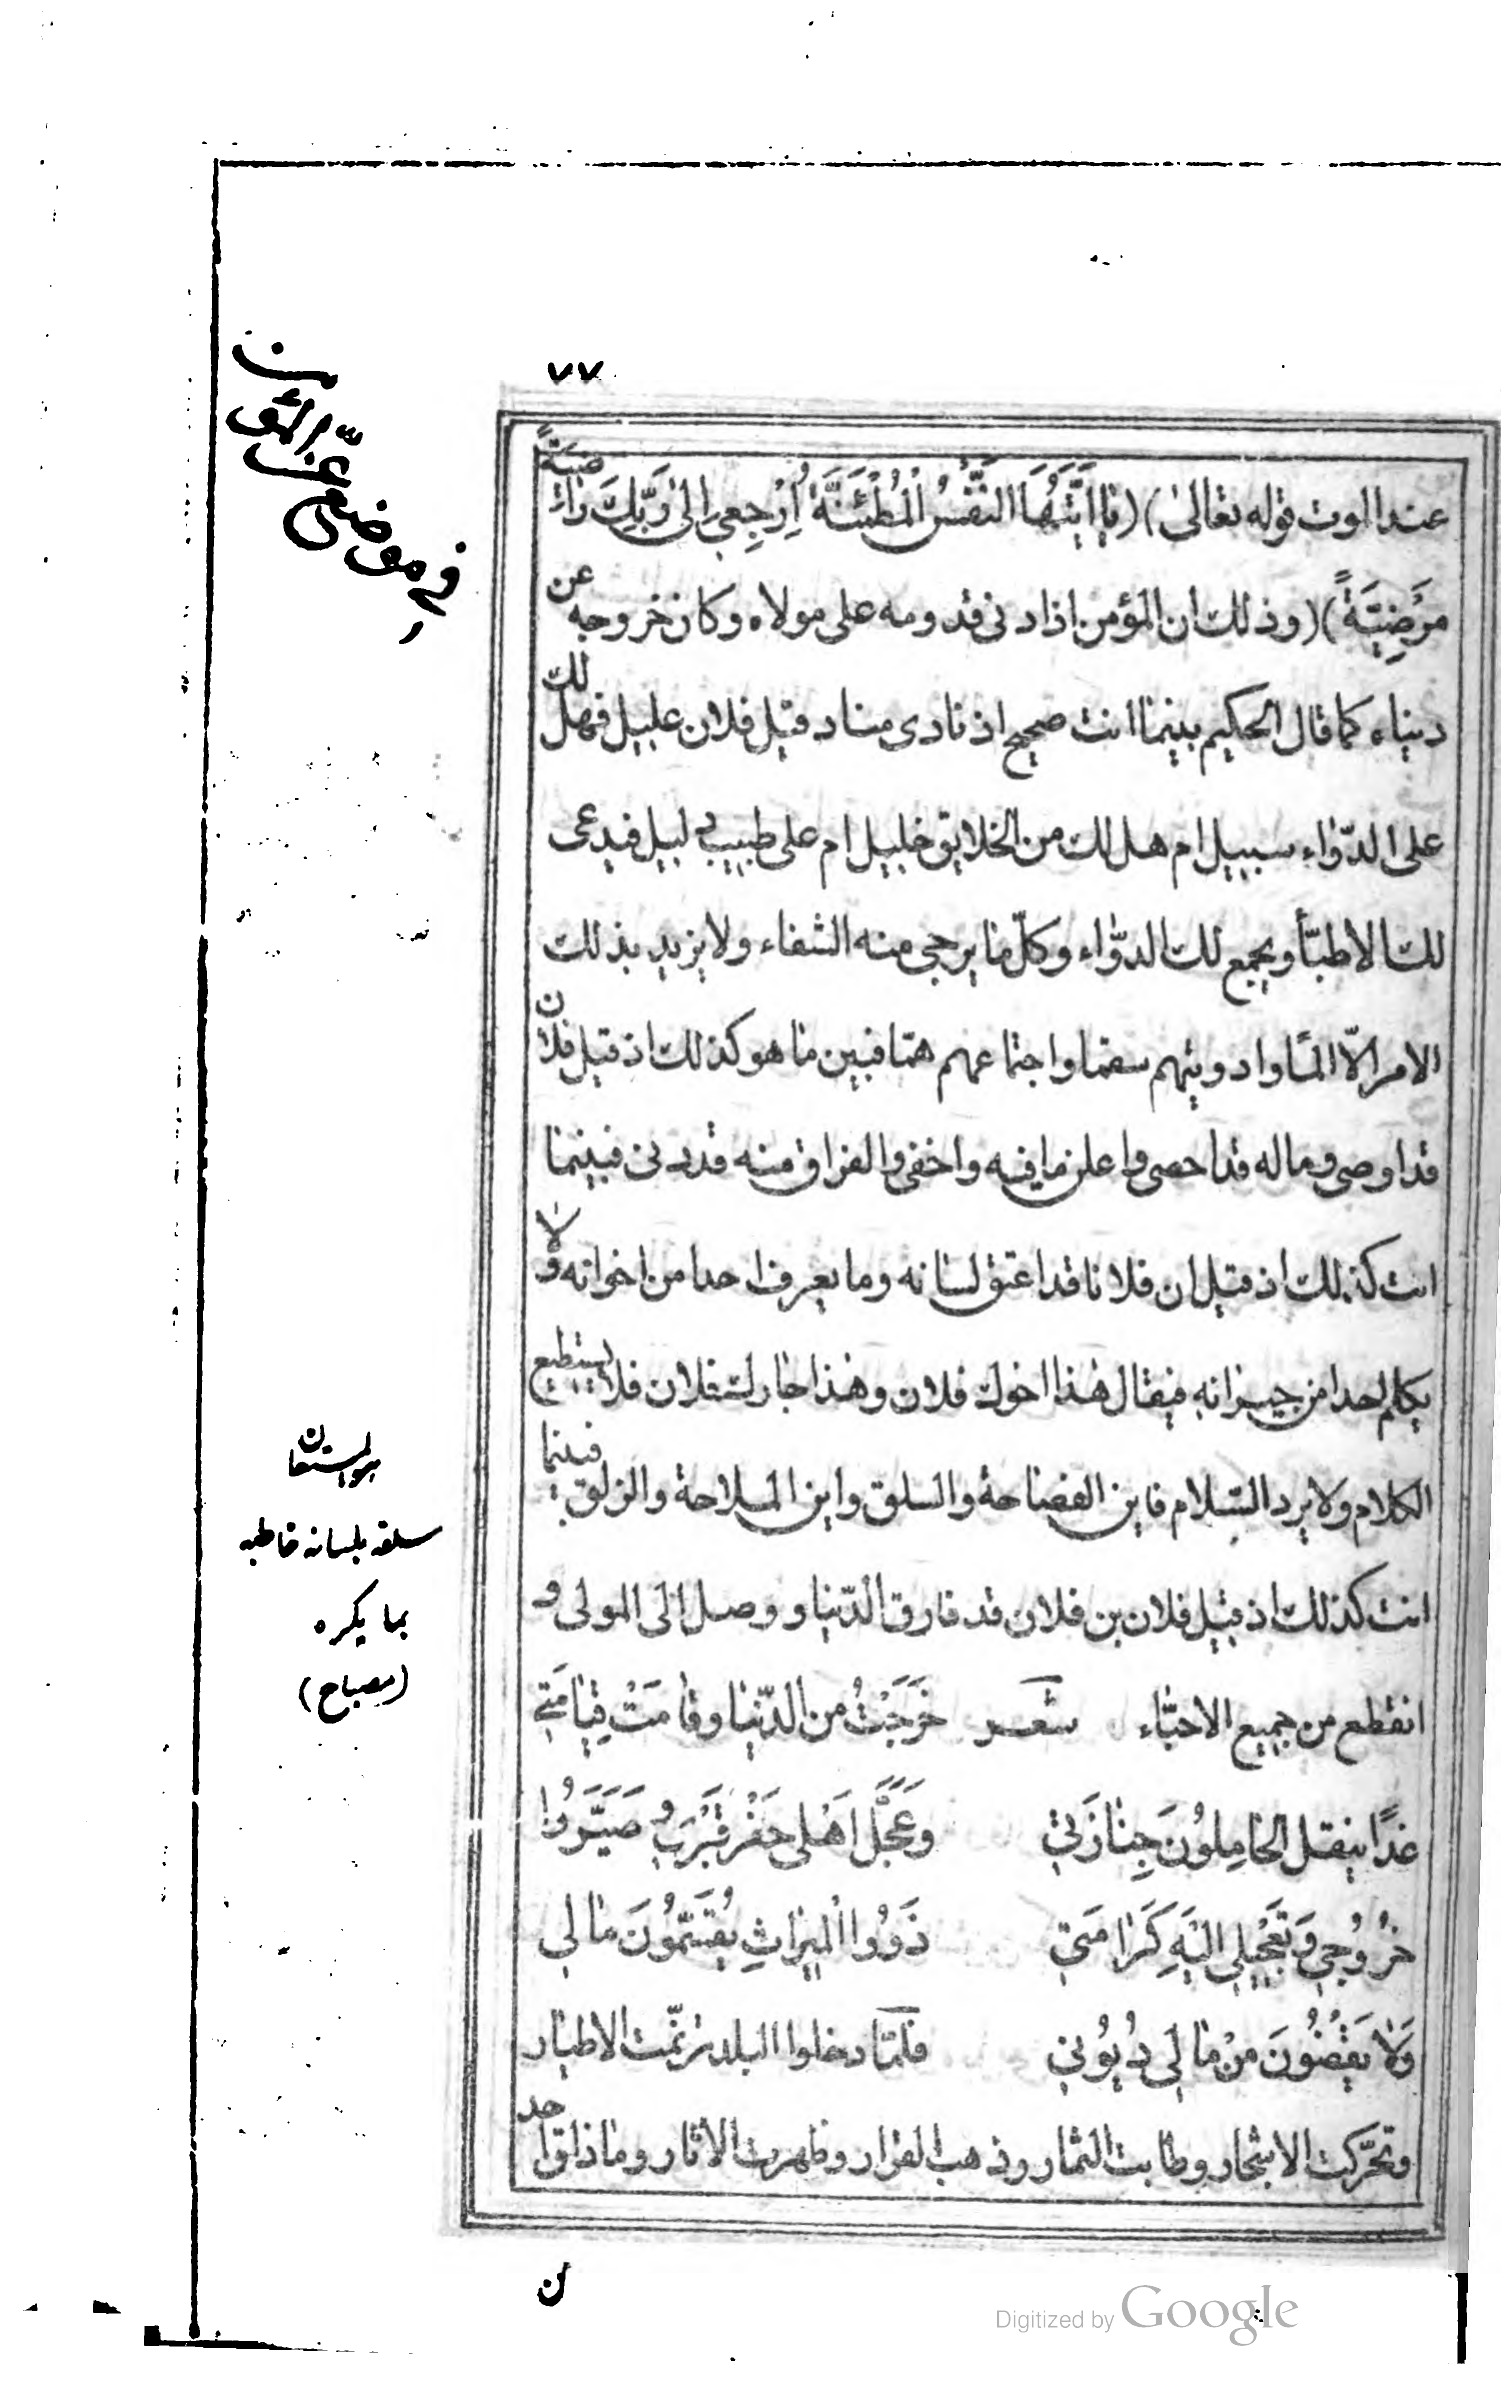 ٧٧
عند الموت قوله تعالى) (يٰا اَيَّتُهَا النَّفْسُ الْمُطْمَئِنَّةُ اِرْجِعِى اِلىٰ رَبِّكِ رٰاضِيَةً
مَرْضِيَّةً) (وذلك ان المؤمن اذا دنى قدومه على مولاه وكان خروجه عن
دنياه كما قال الحكيم بينما انت صحيح اذ نادى مناد قيل فلان عليل فهل لك
على الدّواء سبيل ام هل لك من الخلايق خليل ام على طبيب لبيل فيدعى
لك الاطبّأ ويجمع لك الدوّاء وكلّ ما يرجى منه الشفاء ولا يزيد بذلك
الامر الّا المًا وادويتهم سقما واجتماعهم همّا فبين ما هو كذلك اذ قيل فلان
قد اوصى وماله قد احصى واعلن ما فيه واخفى والفراق منه قد دنى فبينما
انت كذلك اذ قيل ان فلانا قد اعتق لسانه وما يعرف احدا من اخوانه ولا
يكلم احدا من جيرانه فيقال هذا اخوك فلان وهذا جارك فلان فلا يستطيع
الكلام ولا يرد السّلام فاين الفصاحة والسلق واين الملاحة والزلق فبينما
انت كذلك اذ قيل فلان بن فلان قد فارق الدّنيا ووصل الى المولى و
انقطع من جميع الاحبّاء شعر خَرَجْتُ من الدّنيٰا وقٰامَتْ قِيٰامَتِى
غدًا ينقل الحٰامِلُونَ جِنٰازَتِى وعَجَّلَ اَهْلى حَفْرَ قَبْرِى وصَيَّرُوا
خُرُوجِى وَتَعْجِيلِى اِلَيْهِ كَرٰامَتِى ذَوُوا الْمِيرٰاثِ يُقَسِّمُونَ مٰالى
وَلٰا يَقْضُونَ مِنْ مٰالِى دُيُونِى فلمّا دخلوا البلد ترنّمت الاطيار
وتحرّكت الاشجار وطابت الثمار وذهب الفرار وظهرت الآثار وماذاق احد
هو المستعان
سلقه بلسانه خاطبه
بما يكره
(مصباح)
ن
Digitized by Google